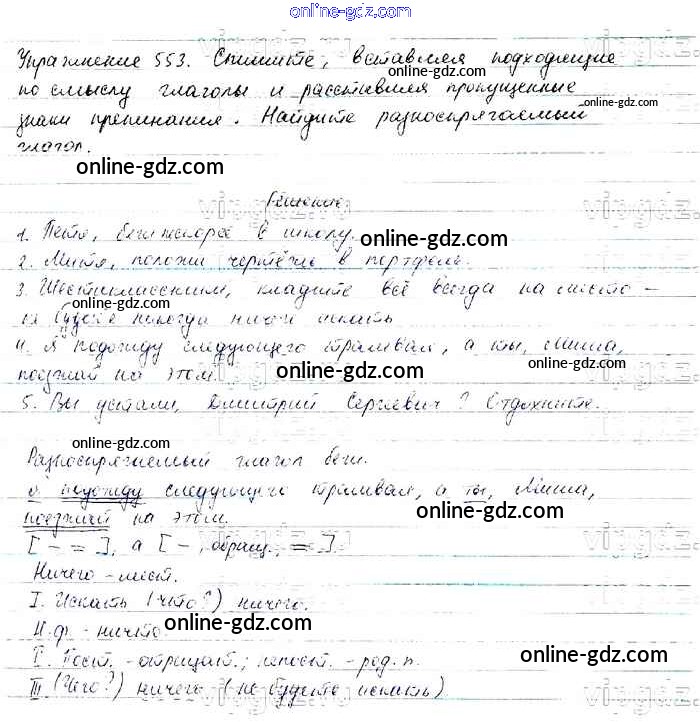 online-gdz.com
Упражнение 553. Спишите, вставляя подходящие
online-gdz.com
по смыслу глаголы и расставляя пропущенные
online-gdz.com
знаки препинания. Найдите разноспрягаемый
глагол.
online-gdz.com
Решение.
1. Петя, беги скорее в школу.
online-gdz.com
2. Митя, положи чертёж в портфель.
online-gdz.com
3. Шестиклассники, кладите всё всегда на место –
online-gdz.com
не будете никогда ничего искать
4. Я подожду следующего трамвая, а ты, Миша,
поезжай на этом.
online-gdz.com
5. Вы устали, Дмитрий Сергеевич? Отдохните.
online-gdz.com
online-gdz.com
Разноспрягаемый глагол беги.
Я подожду следующего трамвая, а ты, Миша,
поезжай на этом.
online-gdz.com
online-gdz.com
[ – = ], а [ –, обращ., = ].
online-gdz.com
Ничего – мест.
I. Искать (что?) ничего.
online-gdz.com
Н.ф. – ничто
online-gdz.com
II. Пост. – отрицат.; непост. – род. п.
online-gdz.com
III (Чего?) ничего (не будете искать)
online-gdz.com